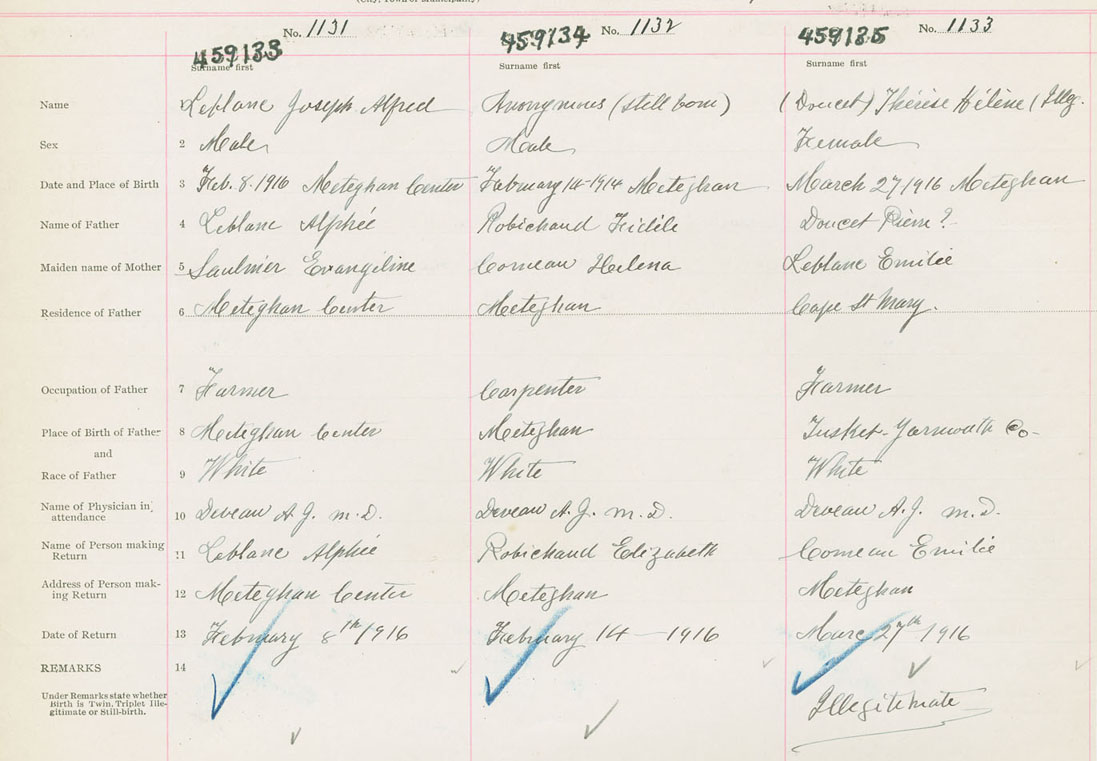 No. 1131 No. 1132 No. 1133
459133 459134 459135
Surname first Surname first Surname first
Name 1 Leblanc Joseph Alfred Anonymous (still born) (Doucet) Thérèse Hélène (Illeg.
Sex 2 Male Male Female
Date and Place of Birth 3 Feb. 8. 1916 Meteghan Center February 14-1914 Meteghan March 27 1916 Meteghan
Name of Father 4 Leblanc Alphée Robichaud Fidèle Doucet Pierre ?
Maiden name of Mother 5 Saulnier Evangiline Comeau Helena Leblanc Emilie
Residence of Father 6 Meteghan Center Meteghan Cape St Mary.
Occupation of Father 7 Farmer Carpenter Farmer
Place of Birth of Father 8 Meteghan Center Meteghan Tusket-Yarmouth Co-
and
Race of Father 9 White White White
Name of Physician in
attendance 10 Deveau A. J. M.D. Deveau A. J. M.D. Deveau A. J. M.D.
Name of Person making
Return 11 Leblanc Alphée Robichaud Elizabeth Comeau Emilie
Address of Person mak-
ing Return 12 Meteghan Center Meteghan Meteghan
Date of Return 13 February 8th 1916 February 14 - 1916 Marc 27th 1916
REMARKS 14
Under Remarks state whether
Birth is Twin, Triplet Ille-
gitimate or Still-birth.
Illegitimate